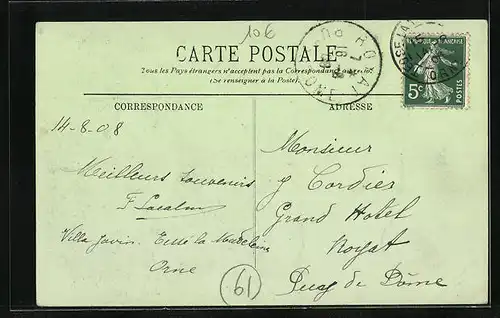 10€
CARTE POSTALE
Tous les Pays étrangers n'acceptent pas la Correspondance au recto
(Se renseigner à la Poste)
CORRESPONDANCE
14-8-08
Meilleurs souvenirs
Villa la Madeleine
Orne
61
ADRESSE
Monsieur
Cordier
Grand Hotel
Royat
Puy de Dôme
ROYAT
5c
POSTES